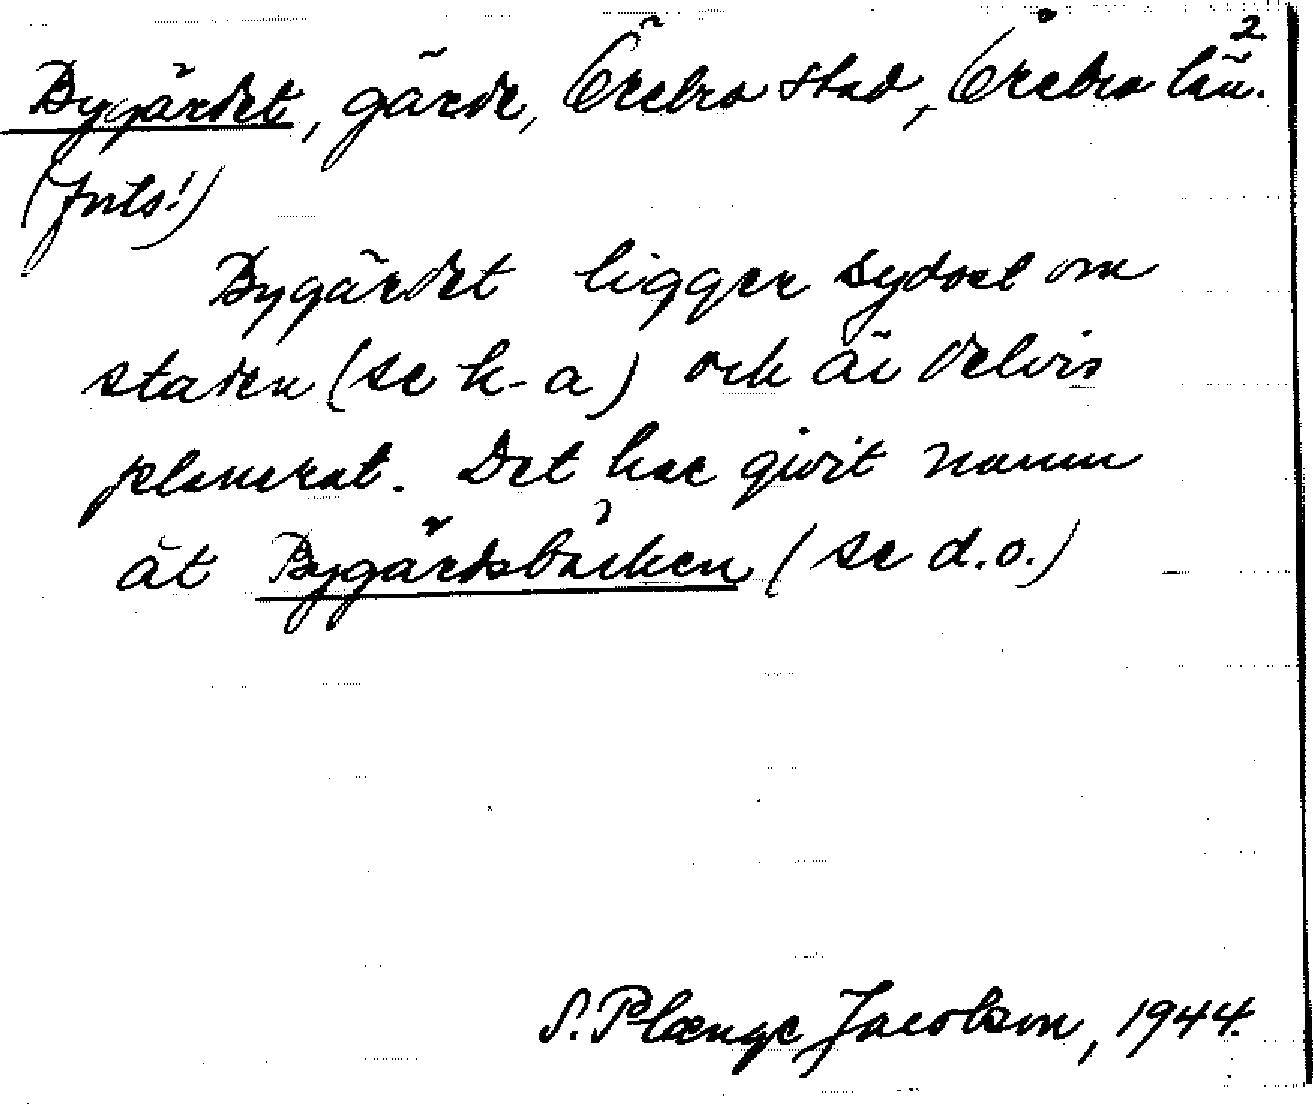 2
Bygärdet, gärde, Örebro stad, Örebro län.
(forts!)
Bygärdet ligger sydost om
staden (se k-a) och är delvis
planerat. Det har givit namn
åt Bygärdsbäcken (se d.o.)
S. Plænge Jacobson, 1944.